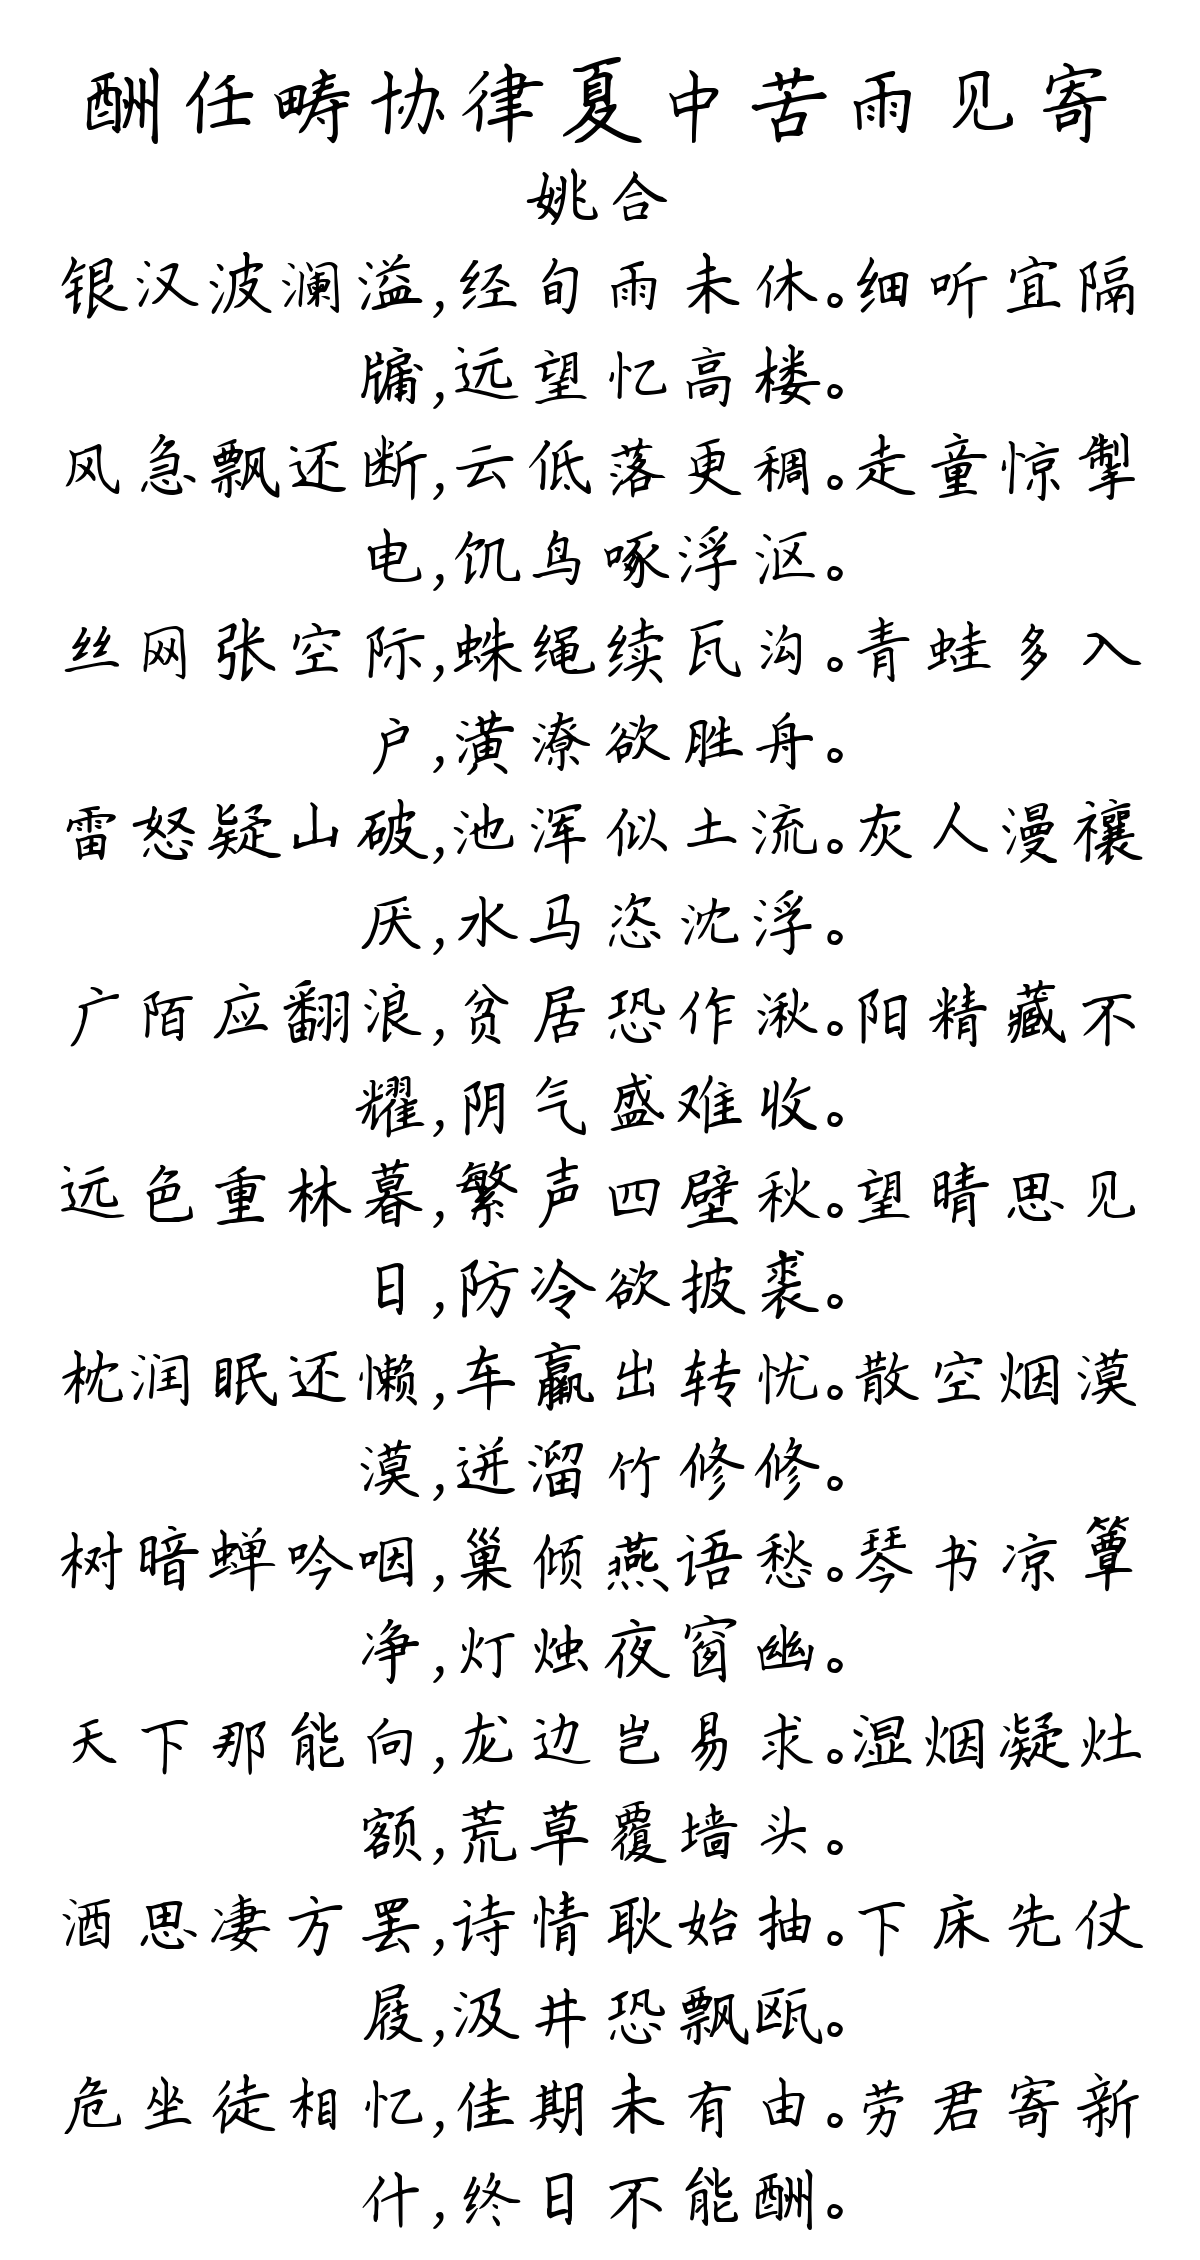 酬任畴协律夏中苦雨见寄
姚合
银汉波澜溢,经旬雨未休。细听宜隔
牖,远望忆高楼。
风急飘还断,云低落更稠。走童惊掣
电,饥鸟啄浮沤。
丝网张空际,蛛绳续瓦沟。青蛙多入
户,潢潦欲胜舟。
雷怒疑山破,池浑似土流。灰人漫禳
厌,水马恣沈浮。
广陌应翻浪,贫居恐作湫。阳精藏不
耀,阴气盛难收。
远色重林暮,繁声四壁秋。望晴思见
日,防冷欲披裘。
枕润眠还懒,车羸出转忧。散空烟漠
漠,迸溜竹修修。
树暗蝉吟咽,巢倾燕语愁。琴书凉簟
净,灯烛夜窗幽。
天下那能向,龙边岂易求。湿烟凝灶
额,荒草覆墙头。
酒思凄方罢,诗情耿始抽。下床先仗
屐,汲井恐飘瓯。
危坐徒相忆,佳期未有由。劳君寄新
什,终日不能酬。